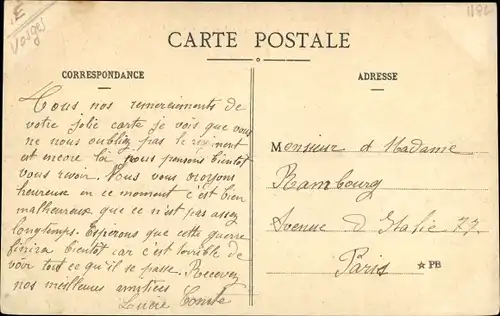 Vosges
1182
CARTE POSTALE
CORRESPONDANCE
ADRESSE
Tous nos remerciements de
votre jolie carte je vois que vous
ne nous oubliez pas le régiment
est encore là nous pensons bientôt
vous revoir. Vous vous croyons
heureux en ce moment c'est bien
malheureux que ce n'est pas assez
longtemps. Esperons que cette guerre
finira bientôt car c'est terrible de
voir tout ce qu'il se passe. Recevez
nos meilleures amitiées
Lucie
Monsieur & Madame
Rambourg
Avenue d'Italie 77
Paris
★ PB